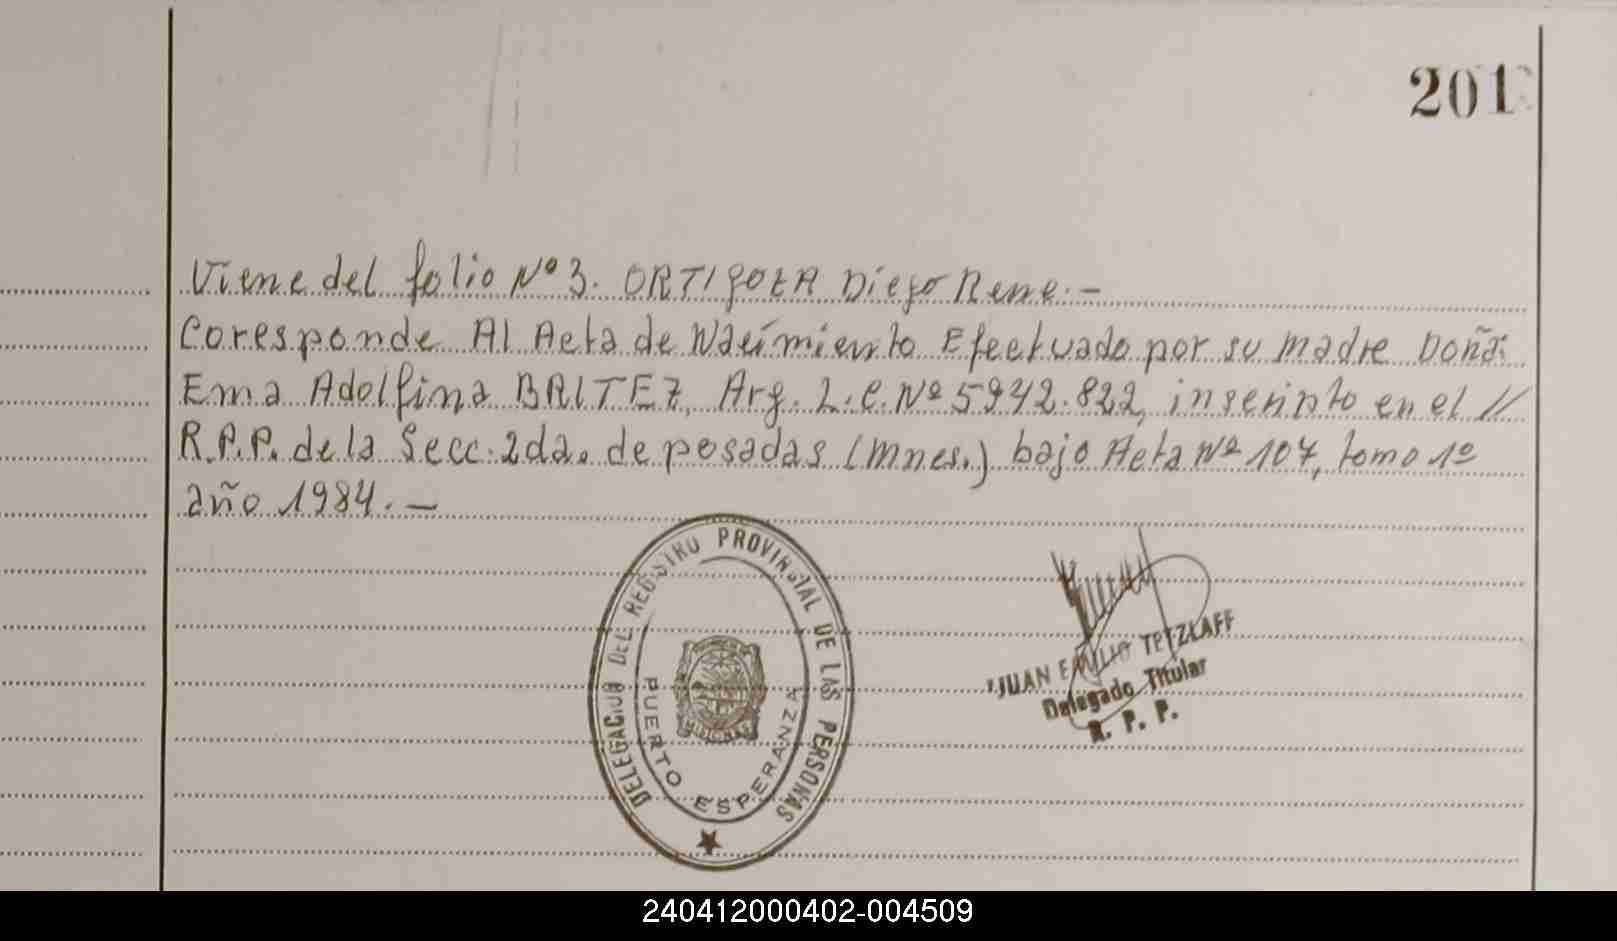 201
Viene del folio Nº 3. ORTIGOZA Diego Rene.-
Coresponde Al Acta de Nacimiento Efectuado por su madre Doña.
Ema Adolfina BRITEZ, Arg. L.C. Nº 5942.822, inscripto en el //
R.P.P. de la Secc. 2da. de posadas (Mnes.) bajo Acta Nº 107, tomo 1º
año 1984.-
DELEGACION DEL REGISTRO PROVINCIAL DE LAS PERSONAS
PUERTO ESPERANZA
MISIONES
JUAN EMILIO TETZLAFF
Delegado Titular
R. P. P.
240412000402-004509